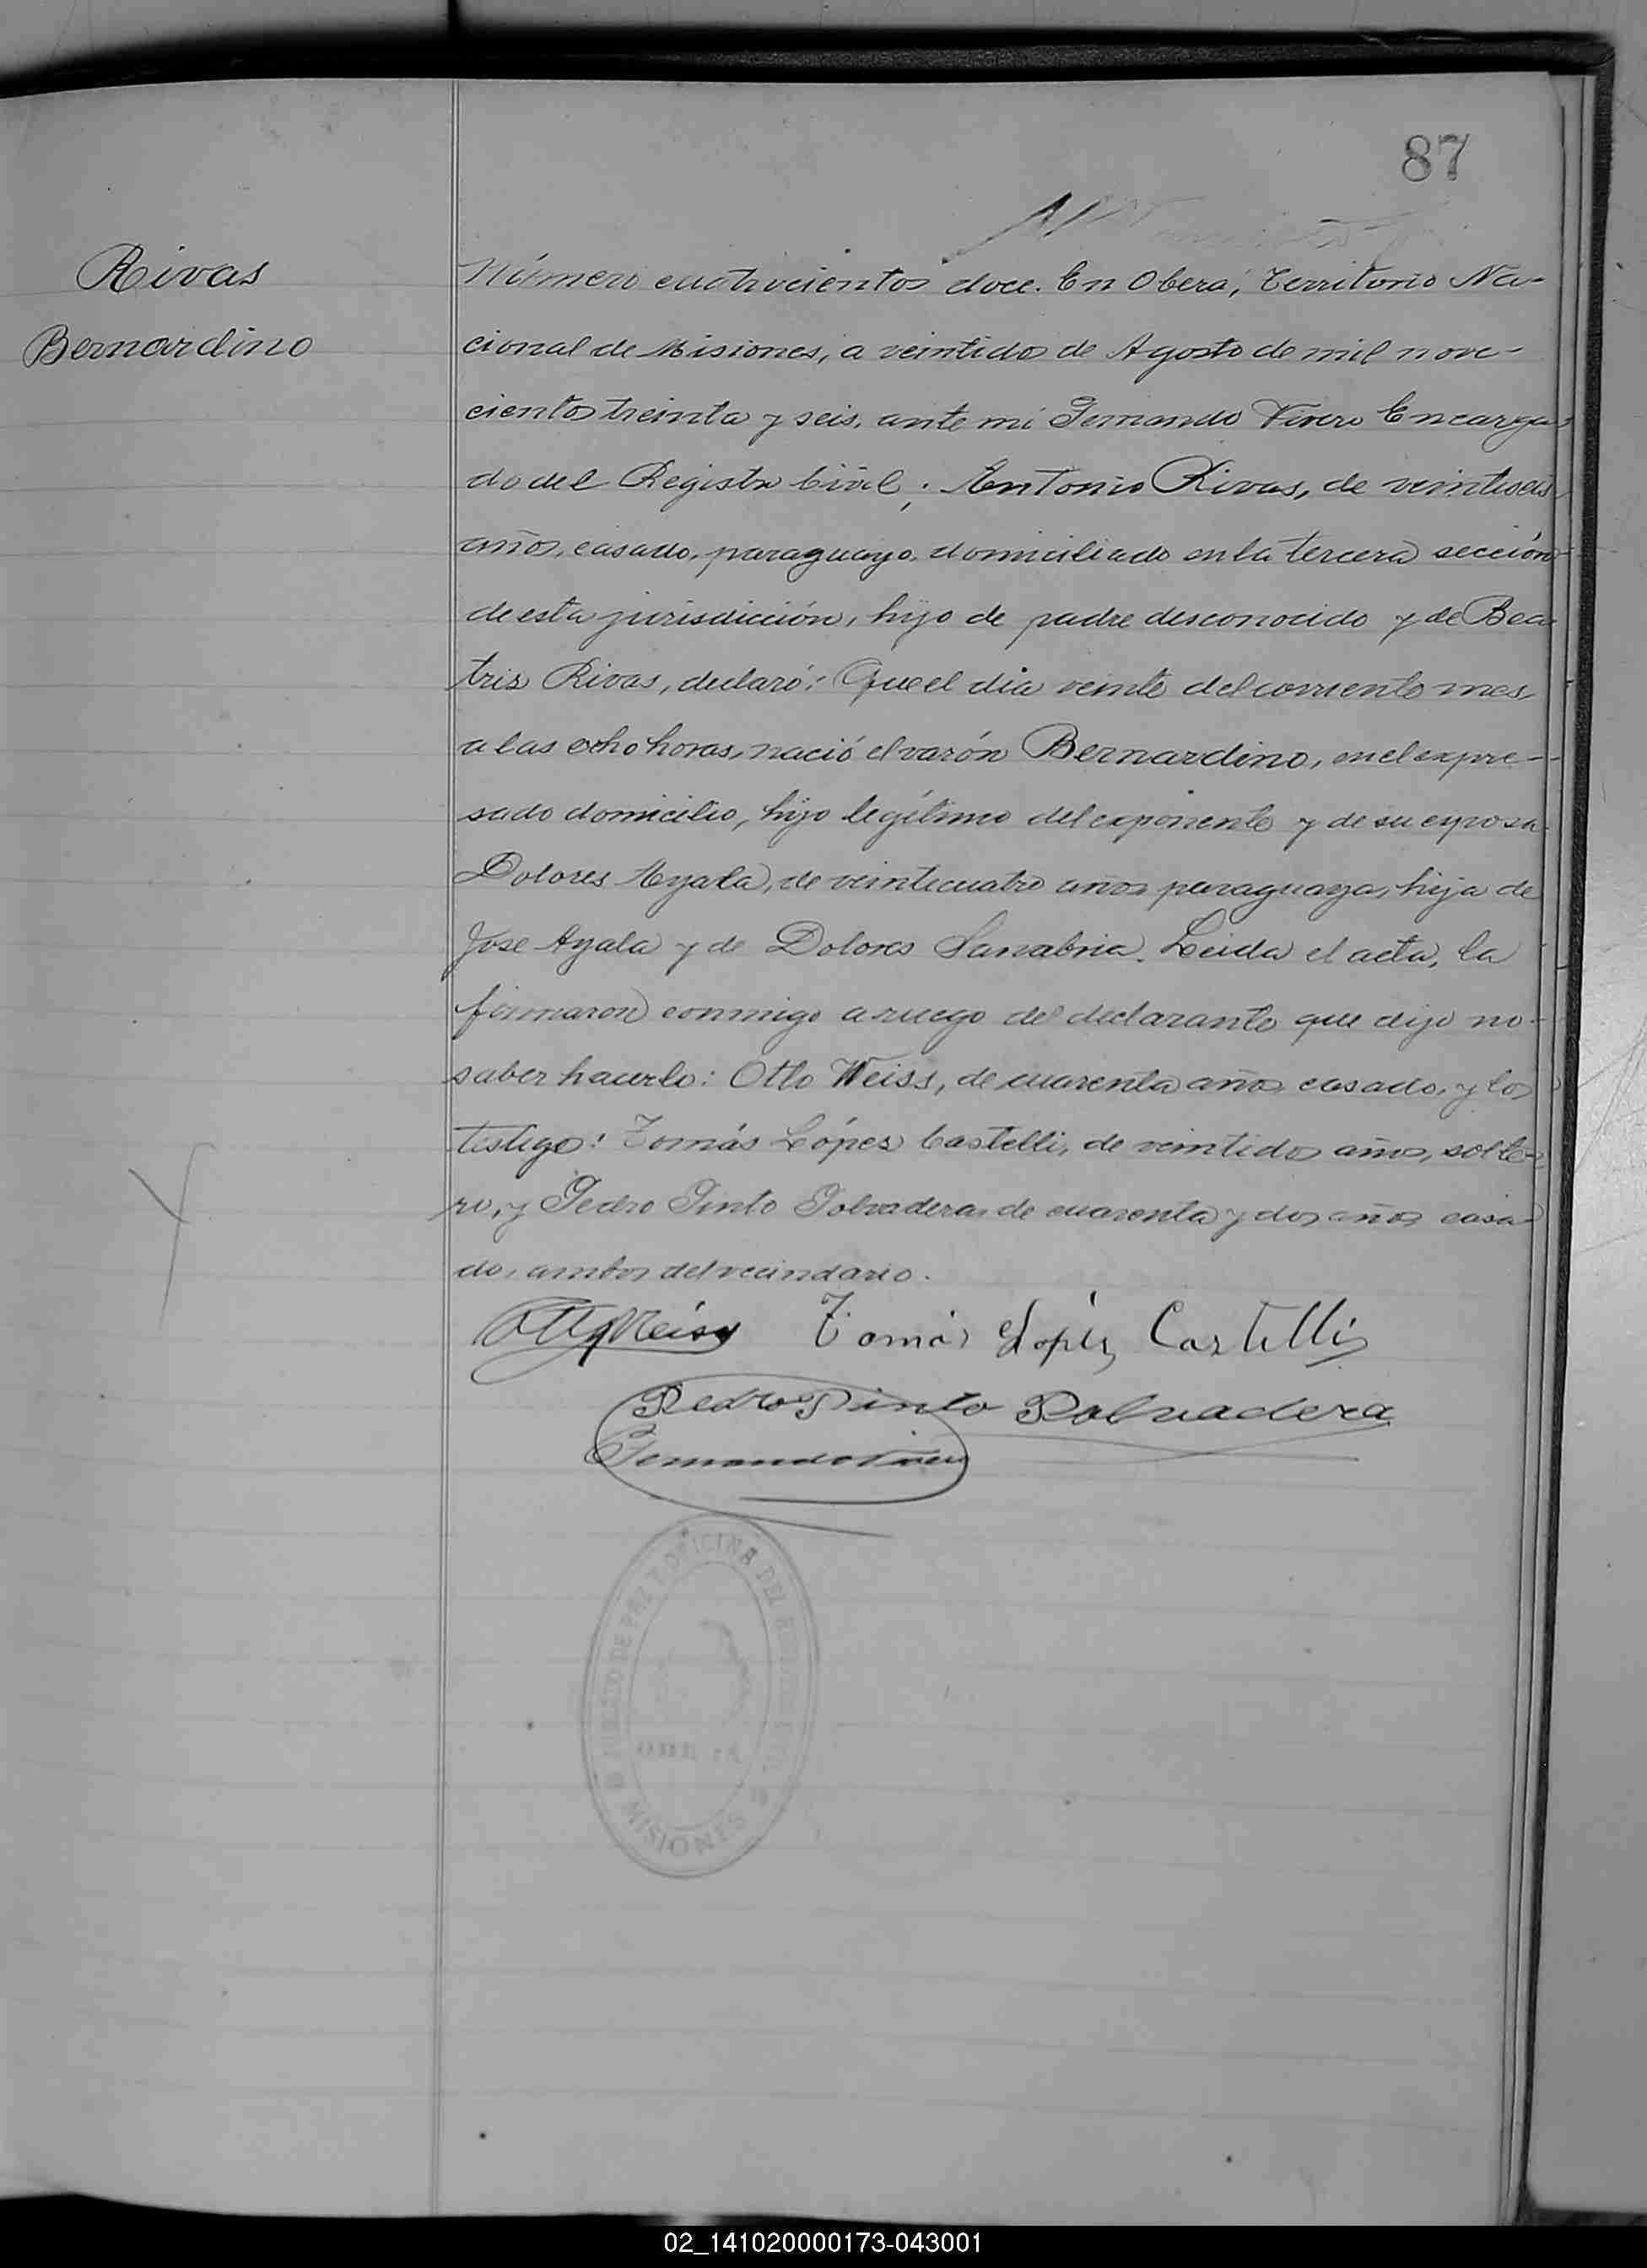 87
Rivas
Bernardino
Número cuatrocientos doce. En Oberá, Territorio Na-
cional de Misiones, a veintidos de Agosto de mil nove-
cientos treinta y seis, ante mi Fernando Vivero Encarga-
do del Registro Civil; Antonio Rivas, de veintiseis
años, casado, paraguayo, domiciliado en la tercera sección
de esta jurisdicción, hijo de padre desconocido y de Bea-
tris Rivas, declaró: Que el dia veinte del corriente mes,
a las ocho horas, nació el varón Bernardino, en el expre-
sado domicilio, hijo legítimo del exponente y de su esposa
Dolores Ayala, de veinticuatro años paraguaya, hija de
Jose Ayala y de Dolores Sanabria. Leida el acta, la
firmaron conmigo a ruego del declarante que dijo no
saber hacerlo: Otto Weiss, de cuarenta años, casado, y los
testigos: Tomás López Castelli, de veintidos años, solte-
ro, y Pedro Pinto Polvadera, de cuarenta y dos años casa-
do, ambos del vecindario.
Otto Weiss Tomás López Castelli
Pedro Pinto Polvadera
Fernando Vivero
JUZGADO DE PAZ Y OFICINA DEL REGISTRO CIVIL
OBERÁ
MISIONES
02_141020000173-043001